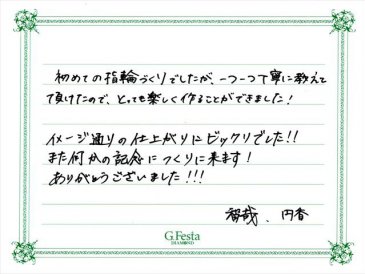 初めての指輪づくりでしたが、一つ一つ丁寧に教えて
頂けたので、とっても楽しく作ることができました！
イメージ通りの仕上がりにビックリでした!!
また何かの記念につくりに来ます！
ありがとうございました!!!
智哉、円香
G.Festa
DIAMOND